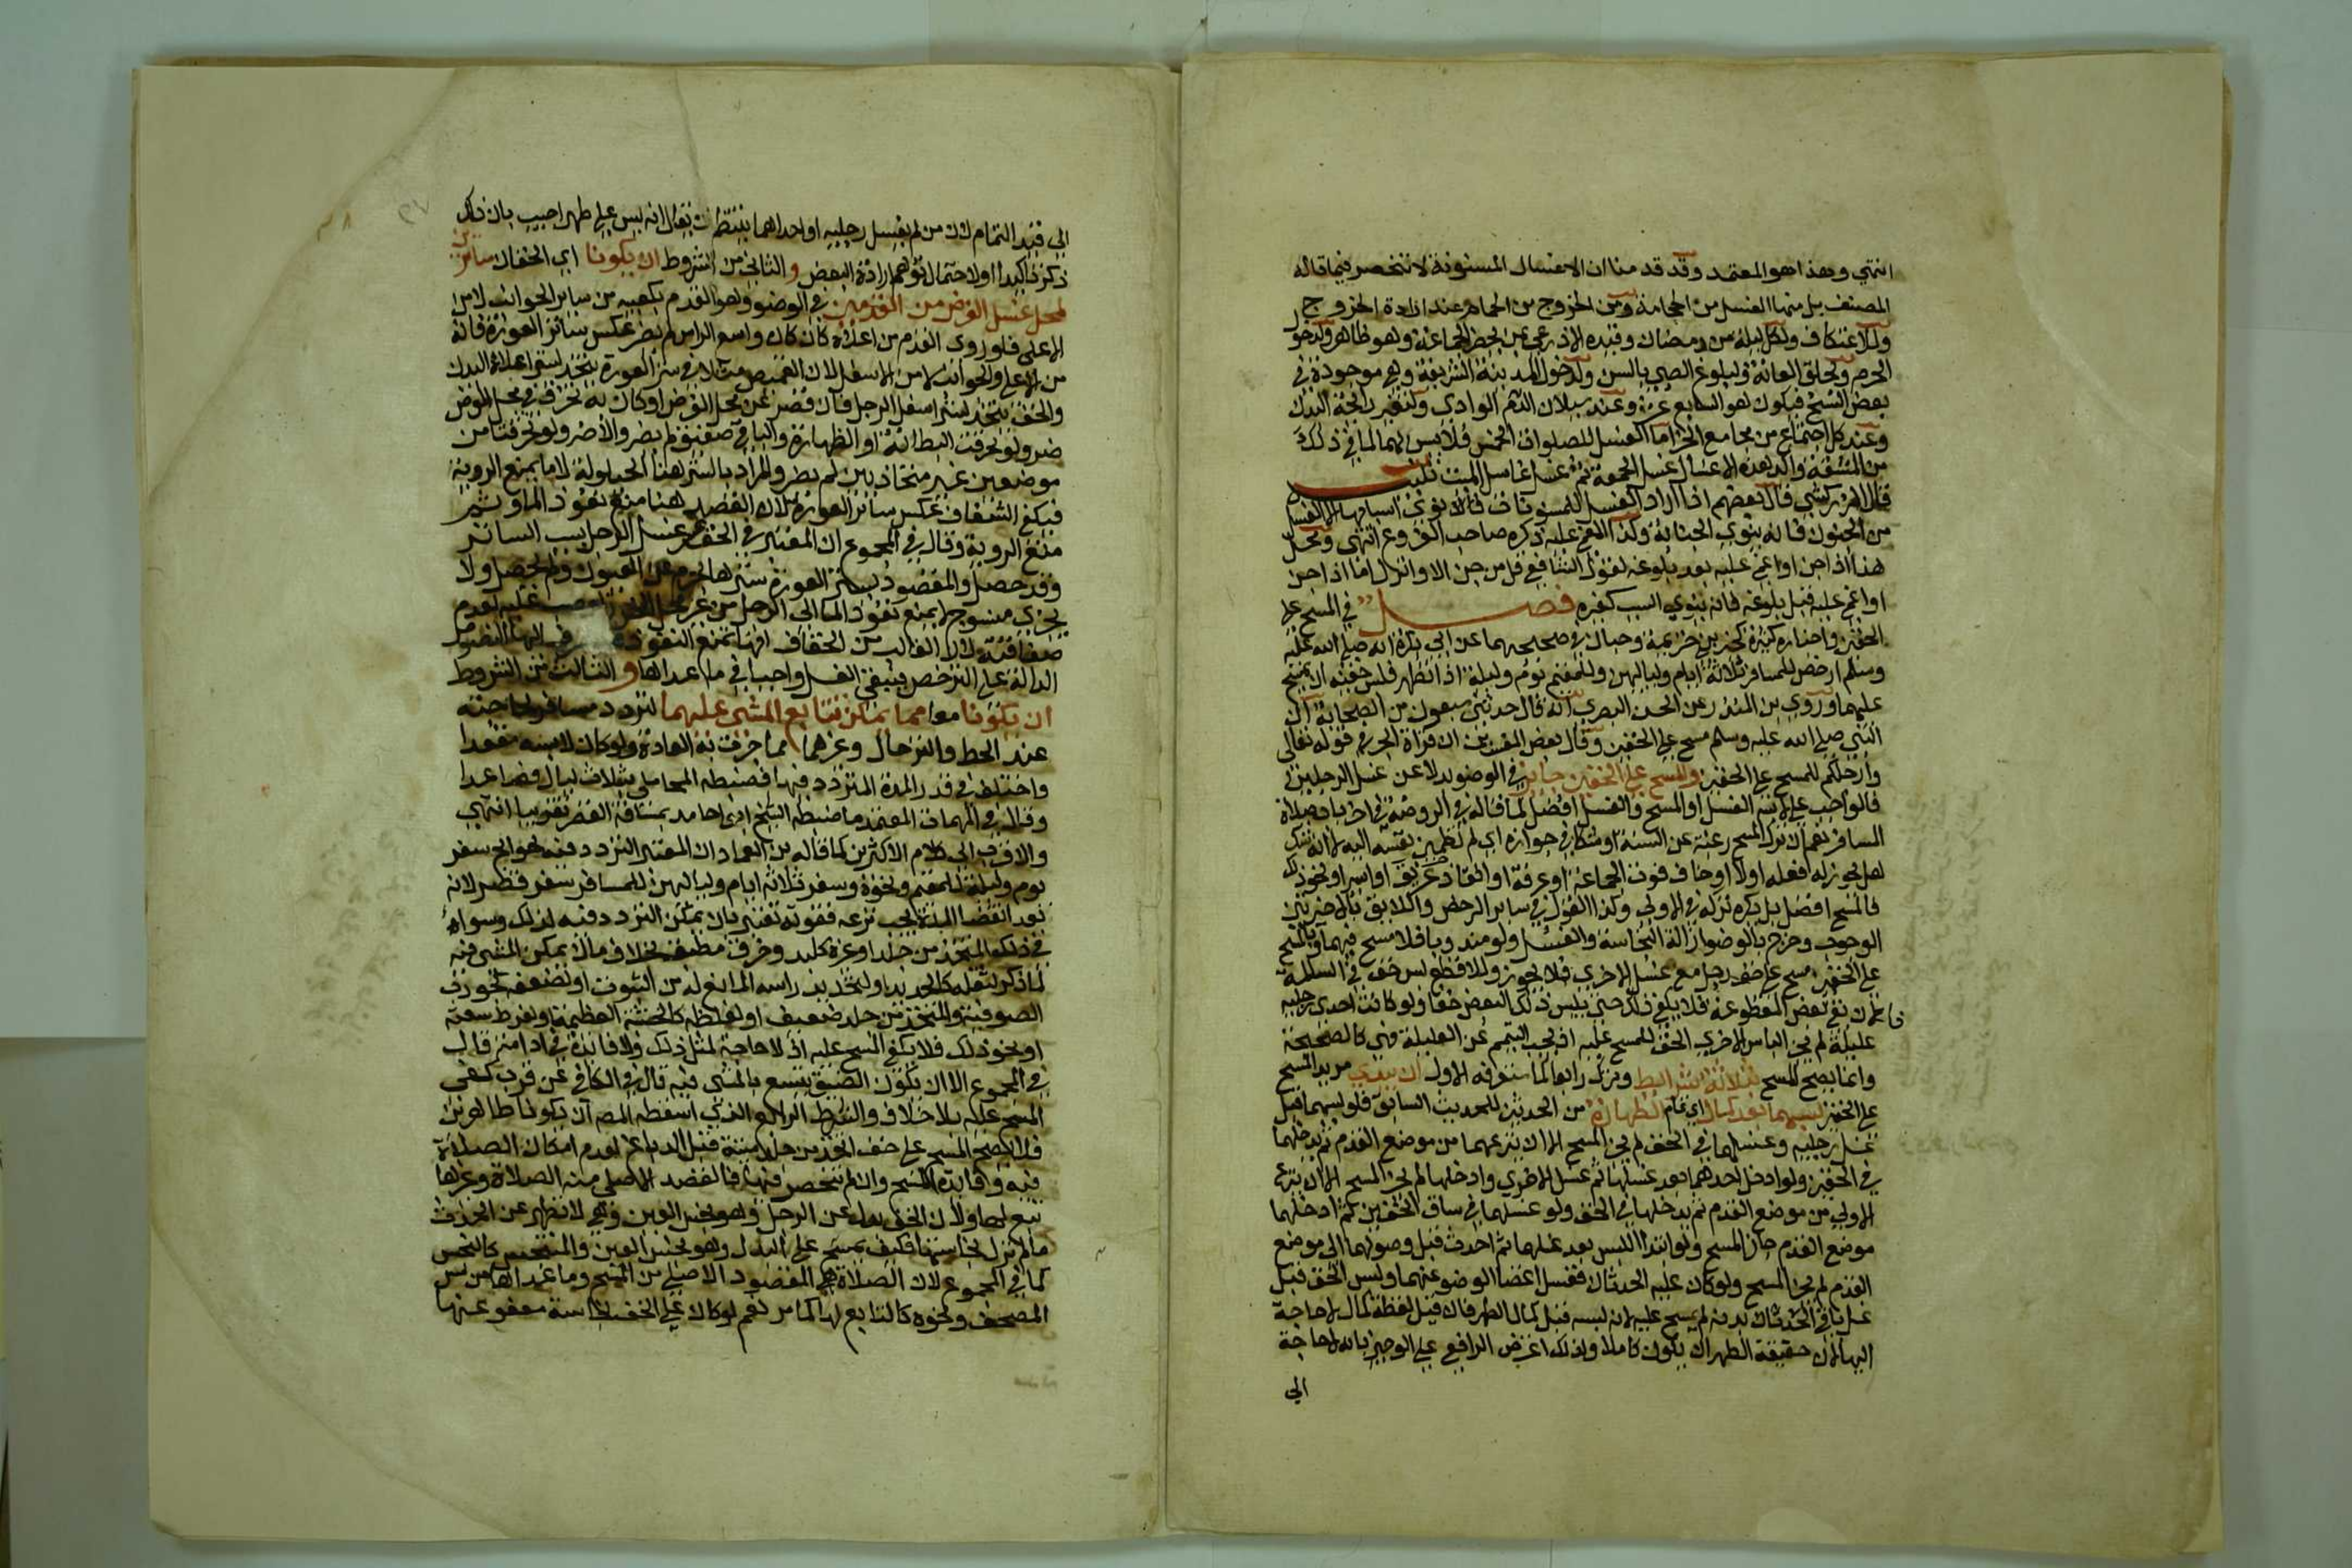 انتهي وهذا هو المعتمد وقد قدمنا ان الاغسال المسنونة لا تنحصر فيما قاله
المصنف بل منها الغسل من الحجامة ومن الخروج من الحمام وعند ارادة الخروج
وللاعتكاف ولكل ليلة من رمضان وقيده الاذرعي بمن يحضر الجماعة وهو ظاهر ولدخول
الحرم ولحلق العانة ولبلوغ الصبي بالسن ولدخول المدينة الشريفة وهي موجودة في
بعض النسخ فيكون هو السابع عشر وعند سيلان الوادي ولتغير رائحة البدن
وعند كل اجتماع من مجامع الخير اما الغسل للصلوات الخمس فلا يسن لها لما في ذلك
من المشقة واكد هذه الاغسال غسل الجمعة ثم غسل غاسل الميت تنبيه
قال الزركشي قال بعضهم اذا اراد الغسل للمسنونات نوى اسبابها الا الغسل
من الجنون فانه ينوي الجنابة وكذا المغمى عليه ذكره صاحب الفروع انتهى ومحل
هذا اذا جن او اغمي عليه بعد بلوغه لقول الشافعي قل من جن الا وانزل اما اذا جن
او اغمي عليه قبل بلوغه فانه ينوي السبب كغيره فصل في المسح على
الخفين واخباره كثيرة كخبر ابن خزيمة وحبان في صحيحيهما عن ابي بكرة انه صلى الله عليه
وسلم ارخص للمسافر ثلاثة ايام ولياليهن وللمقيم يوما وليلة اذا تطهر فلبس خفيه ان يمسح
عليهما وروى ابن المنذر عن الحسن البصري انه قال حدثني سبعون من الصحابة ان
النبي صلى الله عليه وسلم مسح على الخفين وقال بعض المفسرين ان قراة الجر في قوله تعالى
وارجلكم للمسح على الخفين والمسح على الخفين جايز في الوضوء بدلا عن غسل الرجلين
فالواجب على لابسه الغسل او المسح والغسل افضل كما قاله في الروضة في اخر باب صلاة
المسافر نعم ان ترك المسح رغبة عن السنة او شكا في جوازه اي لم تطمئن نفسه اليه لا انه شك
هل يجوز له فعله او لا او خاف فوت الجماعة او عرفة او انقاذ غريق او اسير او نحو ذلك
فالمسح افضل بل يكره تركه في الاولى وكذا القول في سائر الرخص واللايق بالاخيرتين
الوجوب وخرج بالوضوء ازالة النجاسة والغسل ولو مندوبا فلا مسح فيهما وبالمسح
على الخفين مسح خف رجل مع غسل الاخرى فلا يجوز وللاقطع لبس خف في السالمة
فان بقي بعض المقطوعة فلا يكفي ذلك حتى يلبس ذلك البعض خفا ولو كانت احدى رجليه
عليلة لم يجز الباس الاخرى الخف للمسح عليه اذ يجب التيمم عن العليلة فهي كالصحيحة
وانما يصح المسح بثلاثة شرائط وترك رابعا كما ستعرفه الاول ان يبتدي مريد المسح
على الخفين لبسهما بعد كمال اي تمام الطهارة من الحدثين للحديث السابق فلو لبسهما قبل
غسل رجليه وغسلهما في الخف لم يجز المسح الا ان ينزعهما من موضع القدم ثم يدخلهما
في الخفين ولو ادخل احدهما بعد غسلها ثم غسل الاخرى وادخلها لم يجز المسح الا ان ينزع
الاولى من موضع القدم ثم يدخلها في الخف ولو غسلهما في ساق الخفين ثم ادخلهما
موضع القدم جاز المسح ولو ابتدا اللبس بعد غسلهما ثم احدث قبل وصولهما الى موضع
القدم لم يجز المسح ولو كان عليه الحدثان فغسل اعضا الوضو عنهما ولبس الخف قبل
غسل باقي بدنه لم يمسح عليه لانه لبسه قبل كمال الطهر فان قيل لفظة كمال لا حاجة
اليها لان حقيقة الطهر ان يكون كاملا ولذلك اعترض الرافعي على الوجيز بانه لا حاجة
الي
الى قيد التمام لان من لم يغسل رجليه او احداهما ينتظم ان يقال انه ليس على طهر اجيب بان ذلك
ذكر تاكيدا او لاحتمال توهم ارادة البعض والثاني من الشروط ان يكونا اي الخفان ساترين
لمحل غسل الفرض من القدمين في الوضوء وهو القدم بكعبيه من سائر الجوانب لا من
الاعلى فلو روي القدم من اعلاه كان كان واسع الراس لم يضر عكس ساتر العورة فانه
من الاعلى والجوانب لا من الاسفل لان القميص مثلا في ستر العورة يتخذ لستر اعلى البدن
والخف يتخذ لستر اسفل الرجل فان قصر عن محل الفرض او كان به تخرق في محل الفرض
ضر ولو تخرقت البطانة او الظهارة والباقي صفيق لم يضر والا ضر ولو تخرقتا من
موضعين غير متحاذيين لم يضر والمراد بالستر هنا الحيلولة لا ما يمنع الروية
فيكفي الشفاف عكس ساتر العورة لان القصد هنا منع نفوذ الما وثم
منع الروية وقال في المجموع ان المعتبر في الخف عسر غسل الرجل بسبب الساتر
وقد حصل والمقصود بستر العورة سترها عن العيون ولم يحصل ولا
يجزي منسوج لا يمنع نفوذ الما الى الرجل من غير محل الخرز لعدم
صفاقته لان الغالب من الخفاف انها تمنع النفوذ فتنصرف اليها النصوص
الدالة على الترخص فيبقى الغسل واجبا في ما عداها والثالث من الشروط
ان يكونا معا مما يمكن تتابع المشي عليهما لتردد مسافر لحاجته
عند الحط والترحال وغيرهما مما جرت به العادة ولو كان لابسه مقعدا
واختلف في قدر المدة المتردد فيها فضبطه المحاملي بثلاث ليال فصاعدا
وقال في المهمات المعتمد ما ضبطه الشيخ ابو حامد بمسافة القصر تقريبا انتهي
والاقرب الى كلام الاكثرين كما قاله ابن العماد ان المعتبر التردد فيه بحوايج سفر
يوم وليلة للمقيم ونحوه وسفر ثلاثة ايام ولياليهن للمسافر سفر قصر لانه
بعد انقضا المدة يجب نزعه فقوته تعتبر بان يمكن التردد فيه لذلك وسواء
في ذلك المتخذ من جلد او غيره كلبد وخرق مطبقة بخلاف ما لا يمكن المشي فيه
لما ذكر لثقله كالحديد او لتحديد راسه المانع له من الثبوت او لضعفه كجورب
الصوفية والمتخذ من جلد ضعيف او لغلظه كالخشبة العظيمة او لفرط سعته
او نحو ذلك فلا يكفي المسح عليه اذ لا حاجة لمثل ذلك ولا فايدة في ادامته قال
في المجموع الا ان يكون الضيق يتسع بالمشي فيه قال في الكافي عن قرب كفى
المسح عليه بلا خلاف والشرط الرابع الذي اسقطه المصنف ان يكونا طاهرين
فلا يصح المسح على خف اتخذ من جلد ميتة قبل الدباغ لعدم امكان الصلاة
فيه وفايدة المسح وان لم تنحصر فيها فالقصد الاصلي منه الصلاة وغيرها
تبع لها ولان الخف بدل عن الرجل وهو نجس العين وهي لا تطهر عن الحدث
ما لم تزل نجاستها فكيف يمسح على البدل وهو نجس العين والمتنجس كالنجس
كما في المجموع لان الصلاة هي المقصود الاصلي من المسح وما عداها من مس
المصحف ونحوه كالتابع لها كما مر نعم لو كان على الخف نجاسة معفو عنها